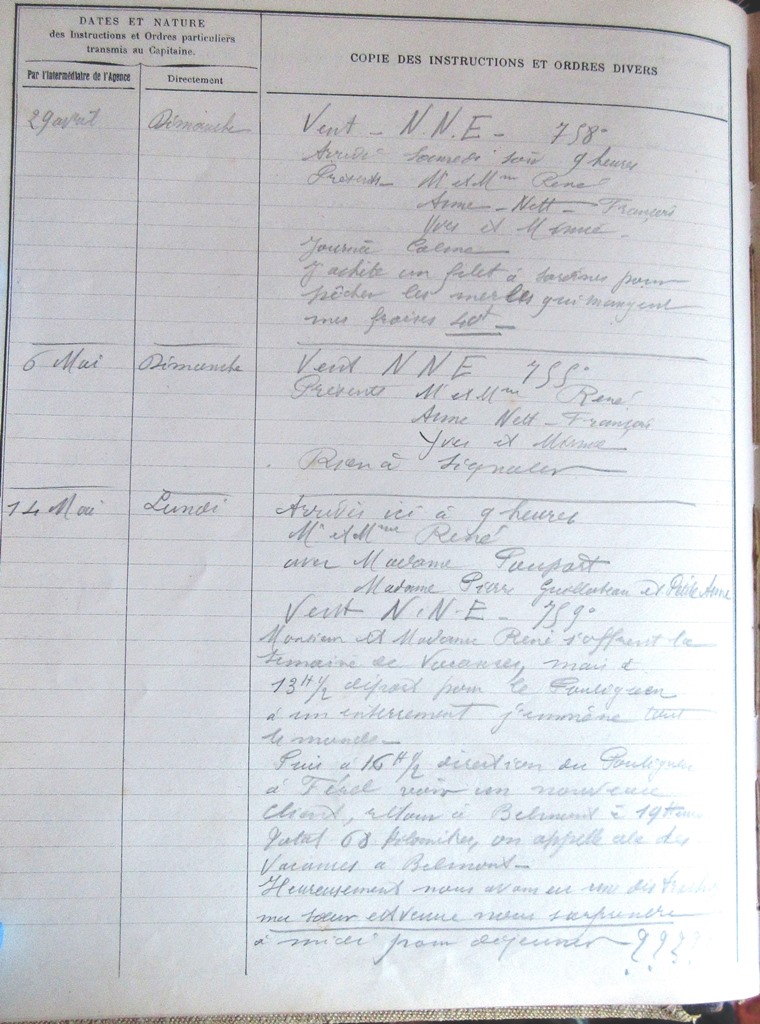 DATES ET NATURE
des Instructions et Ordres particuliers
transmis au Capitaine.
Par l'Intermédiaire de l'Agence
Directement
COPIE DES INSTRUCTIONS ET ORDRES DIVERS
29 avril Dimanche Vent - N.N.E - 758°
Arrivés samedi soir 9 heures
Présents - Mr et Mme René
Anne - Nett - François
Yves et Mimie -
Journée Calme
J'achète un filet à sardines pour
pêcher les merles qui mangent
mes fraises
6 Mai Dimanche Vent N N E 755°
Présents Mr et Mme René
Anne Nett - François
Yves et Mimie
Rien à signaler
14 Mai Lundi Arrivés ici à 9 heures
Mr et Mme René
avec Madame Poupart
Madame Pierre Guilloteau et Petite Anne
Vent N.N.E - 759°
Monsieur et Madame René s'offrent la
semaine de Vacances, mais à
13H½ départ pour le Pouliguen
à un enterrement j'emmène tout
le monde -
Puis à 16H½ direction du Pouliguen
à Férel voir un nouveau
Client, retour à Belmont à 19 heures
Total 68 kilomètres, on appelle cela des
Vacances à Belmont -
Heureusement nous avons eu une
ma sœur est venue nous surprendre
à midi pour déjeuner ????